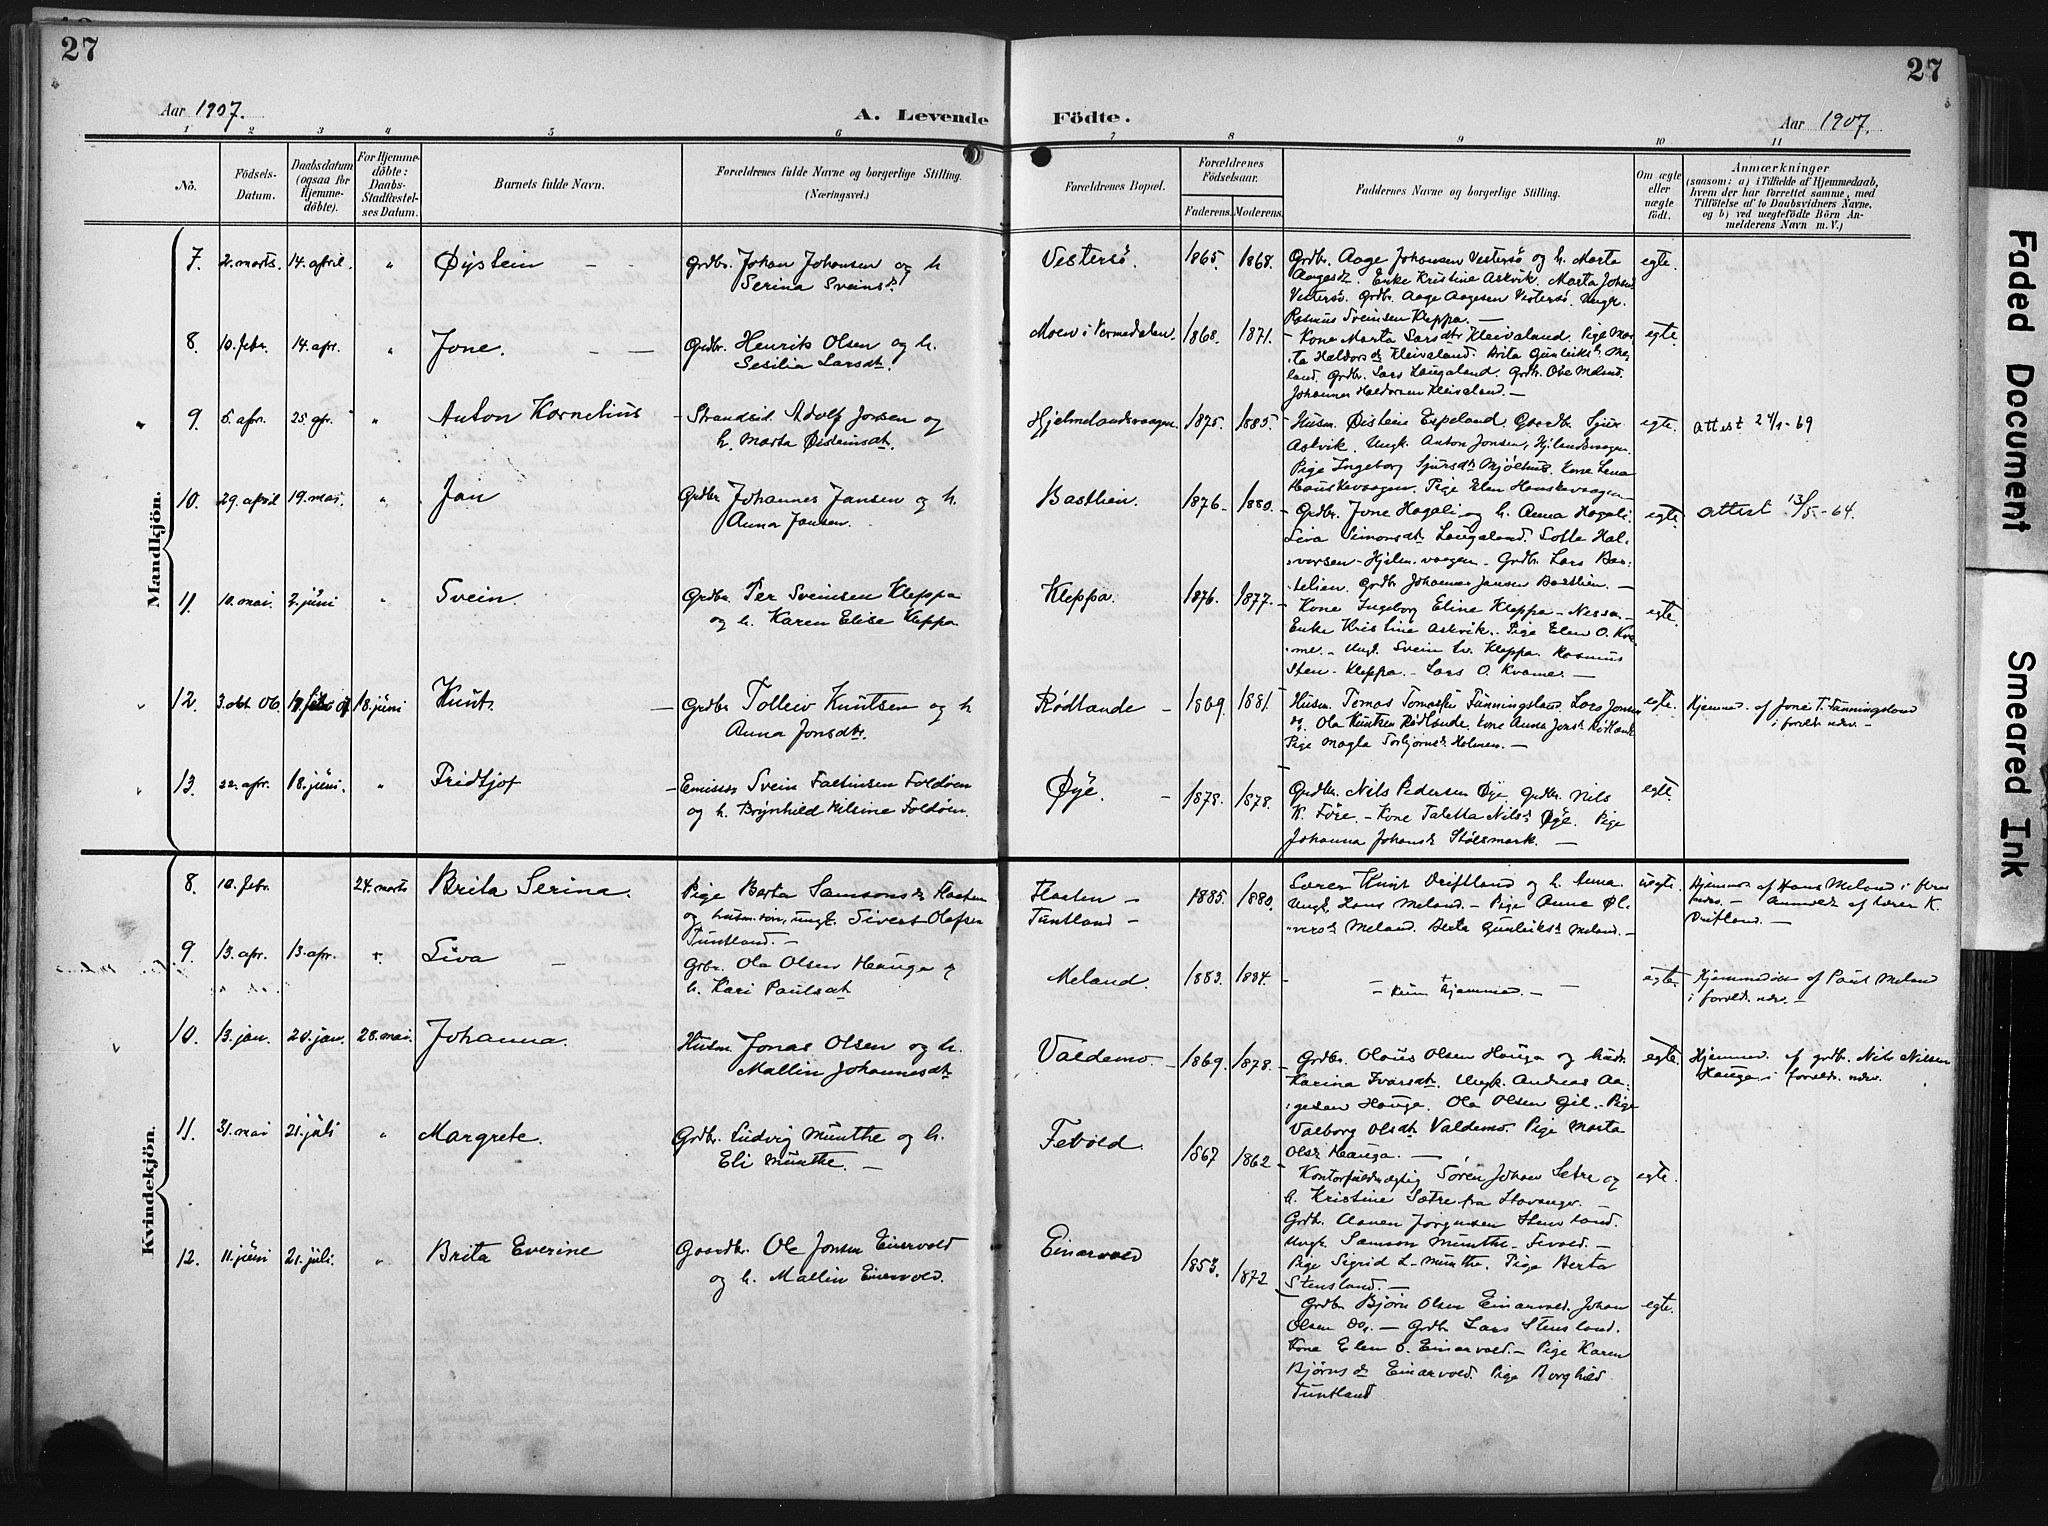 27
27
Aar 1907.
A. Levende
Födte.
Aar 1907.
1 2 3 4 5 6 7 8 9 10 11
No.
Födsels-
Datum.
Daabsdatum
(ogsaa for
Hjemme-
döbte).
For Hjemme-
döbte:
Daabs-
Stadfæstel-
ses Datum.
Barnets fulde Navn.
Forældrenes fulde Navne og borgerlige Stilling.
(Næringsvei.)
Forældrenes Bopæl.
Forældrenes
Födselsaar.
Faderens. Moderens.
Faddernes Navne og borgerlige Stilling.
Om ægte
eller
uægte
födt.
Anmærkninger
(saasom: a) i Tilfælde af Hjemmedaab,
hvem der har forrettet samme, med
Tilföielse af to Daabsvidners Navne,
og b) ved uægtefödte Börn An-
melderens Navn m. V.)
Mandkjön.
7. 2. marts. 14. april. " Øystein - - Grdbr. Johan Johansen og h.
Serina Sveinsdt.
Vestersø. 1865. 1868. Grdbr. Aage Johansen Vestersø og h. Marta egte.
Aagesdt. Enke Kristine Askvik. Marta Johsd.
Vestersø. Grdbr. Aage Aagesen Vestersø. Ungk.
Rasmus Sveinsen Kleppa. -
8. 10. febr. 14. apr. " Jone. - - Grdbr. Henrik Olsen og h.
Sesilia Larsdt.
Moen i Vormedalen. 1868. 1871. - Kone Marta Larsdtr. Kleivaland. Pige Mar- egte.
ta Haldorsdt. Kleivaland. Brita Gunleiksdt. Me-
land. Grdbr. Lars Laugaland. Grdbr. Ove Meland.
Johannes Haldorsen Kleivaland. -
9. 5. apr. 25. apr. " Anton Kornelius - Strandsid. Adolf Jonsen og
h. Marta Øisteinsdt.
Hjelmelandsvaagen. 1875. 1885. - Husm. Øistein Espeland. Gaardbr. Sjur egte. Attest 24/1-69
Askvik. Ungk. Anton Jonsen, Hjelmlandsvaagen.
Pige Ingeborg Sjursdt. Mjølhus. Kone Lena
Hauskevaagen. Pige Elen Hauskevaagen
10. 29. april 19. mai. " Jan Grdbr. Johannes Jansen og h.
Anna Jansen.
Bastlien. 1876. 1880. - Grdbr. Jone Hagali og h. Anna Hagali. egte. Attest 13/5-64.
Siva Simonsdt. Laugaland. Lotta Hal-
vorsen - Hjelm.vaagen. Grdbr. Lars Bas-
telien. Grdbr. Johannes Jansen Bastlien. -
11. 10. mai. 2. juni " Svein. Grdbr. Per Sveinsen Kleppa
og h. Karen Elise Kleppa
Kleppa. 1876. 1877. - Kone Ingeborg Eline Kleppa - Nessa. egte.
Enke Kristine Askvik. Pige Elen O. Kva-
me. - Ungk. Svein Sv. Kleppa. Rasmus
Sten. Kleppa. - Lars O. Kvame. -
12. 3. okt 06. 18. juni Knut - Grdbr Tolleiv Knutsen og h
Anna Jonsdtr.
Rødlande - 1869. 1881. Husm. Tomas Fanningsland. Lars Jonsen egte. Hjemmed. af Jone T. Fanningsland
Ola Knutsen Rødlande. Kone Anna Jonsdt. Rødlande i foreldr. nærv. -
Pige Magla Torbjørnsdt. Holmen. -
13. 22. apr. 18. juni. " Fridtjof - Emissær Svein Faltinsen Foldøen
og h. Brynhild Nilsine Foldøen.
Øye. - 1878. 1878. Grdbr. Nils Pedersen Øye. Grdbr. Nils egte.
K. Føre. - Kone Taletta Nilsdt. Øye. Pige
Johanna Johansdt. Stølsmark. -
Kvindekjön.
8. 10. febr. 24. marts Brita Serina. Pige Berta Samsonsdt. Flaaten
og husm.søn, ungk. Sivert Olafsen
Tuntland. -
Flaaten -
Tuntland - 1885. 1880. Lærer Knut Driftland og h. Anna. uegte. Hjemmed. af Hans Meland i
Ungk. Hans Meland. - Pige Anna Øl- - Anmeldt af lærer K.
versdt. Meland. Berta Gunleiksdt. Meland. - Driftland. -
9. 13. apr. 13. apr. " Siva - Grbr. Ola Olsen Hauga og
h. Kari Paulsdt
Meland. 1883. 1884. - - kun hjemmed. - egte. Hjemmedøbt af Paul Meland
i foreldr. nærv. -
10. 13. jan. 20. jan. 28. mai. Johanna. Husm Jonas Olsen og h.
Mallin Johannesdt.
Valdemo - 1869. 1878. Grdbr. Olaus Olsen Hauga og hustr. egte. Hjemmed. af grdbr. Nils Nilsen
Karina Ivarsdt. Ungk. Andreas Aa- Hauga i foreldr. nærv.
gesen Hauga. Ola Olsen Gil. - Pige
Valborg Olsdt. Valdemo. Pige Marta
Olsdt. Hauga. -
11. 31. mai 21. juli " Margrete. Grdbr. Ludvig Munthe og h.
Eli Munthe. -
Fevold. 1867 1862 - Kontorfuldmægtig Søren Johan Sætre og egte.
h. Kristine Sætre fra Stavanger.
Grdbr. Aanen Jørgensen Stensland.
Ungk. Samson Munthe - Fevold. -
Pige Sigrid L. Munthe. Pige Berta
Stensland. -
12. 11. juni 21. juli. " Brita Everine Gaardbr. Ole Jonsen Einervold
og h. Mallin Einervold.
Einarvold 1853. 1872 - Grdbr Bjørn Olsen Einarvold. Johan egte.
Olsen do. - Grdbr Lars Stensland.
Kone Elen O. Einarvold. - Pige Karen
Bjørnsdt. Einarvold. Pige Borghild
Tuntland
Faded Document
Smeared Ink